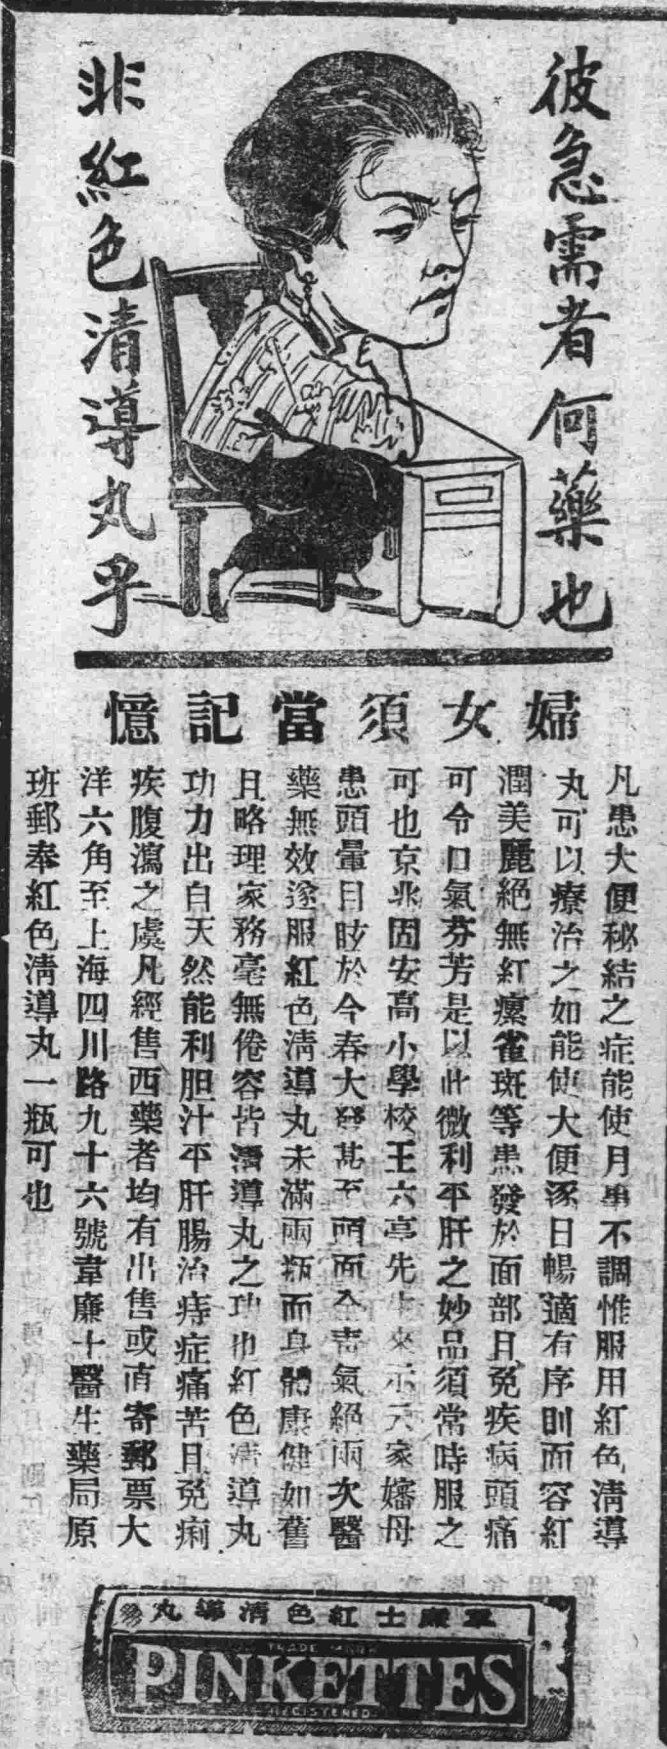 彼急需者何藥也
非紅色清導丸乎
婦女須當記憶
凡患大便秘結之症能使月事不調惟服用紅色清導
丸可以療治之如能使大便逐日暢適有序則面容紅
潤美麗絕無紅瘰雀斑等患發於面部且免疾病頭痛
可令口氣芬芳是以此微利平肝之妙品須常時服之
可也京兆固安高小學校王六亭先生來示云家嬸母
患頭暈目眩於今春大發甚至頭面全青氣絕兩次醫
藥無效遂服紅色清導丸未滿兩瓶而身體康健如舊
且略理家務毫無倦容皆清導丸之功也紅色清導丸
功力出自天然能利胆汁平肝腸治痔症痛苦且免痢
疾腹瀉之虞凡經售西藥者均有出售或直寄郵票大
洋六角至上海四川路九十六號韋廉士醫生藥局原
班郵奉紅色清導丸一瓶可也
韋廉士紅色清導丸
TRADE MARK
PINKETTES
REGISTERED